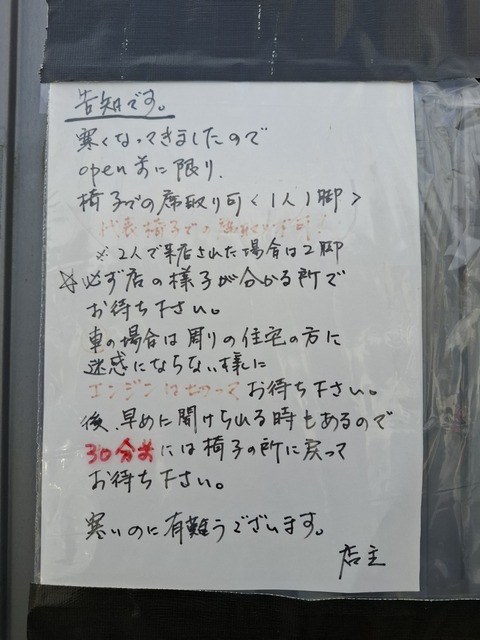 告知です。
寒くなってきましたので
open前に限り、
椅子での席取り可<1人1脚>
代表椅子での席取り不可!
※2人で来店された場合は2脚
☆必ず店の様子が分かる所で
お待ち下さい。
車の場合は周りの住宅の方に
迷惑にならない様に
エンジンは切って お待ち下さい。
後、早めに開けられる時もあるので
30分前には椅子の所に戻って
お待ち下さい。
寒いのに有難うございます。
店主